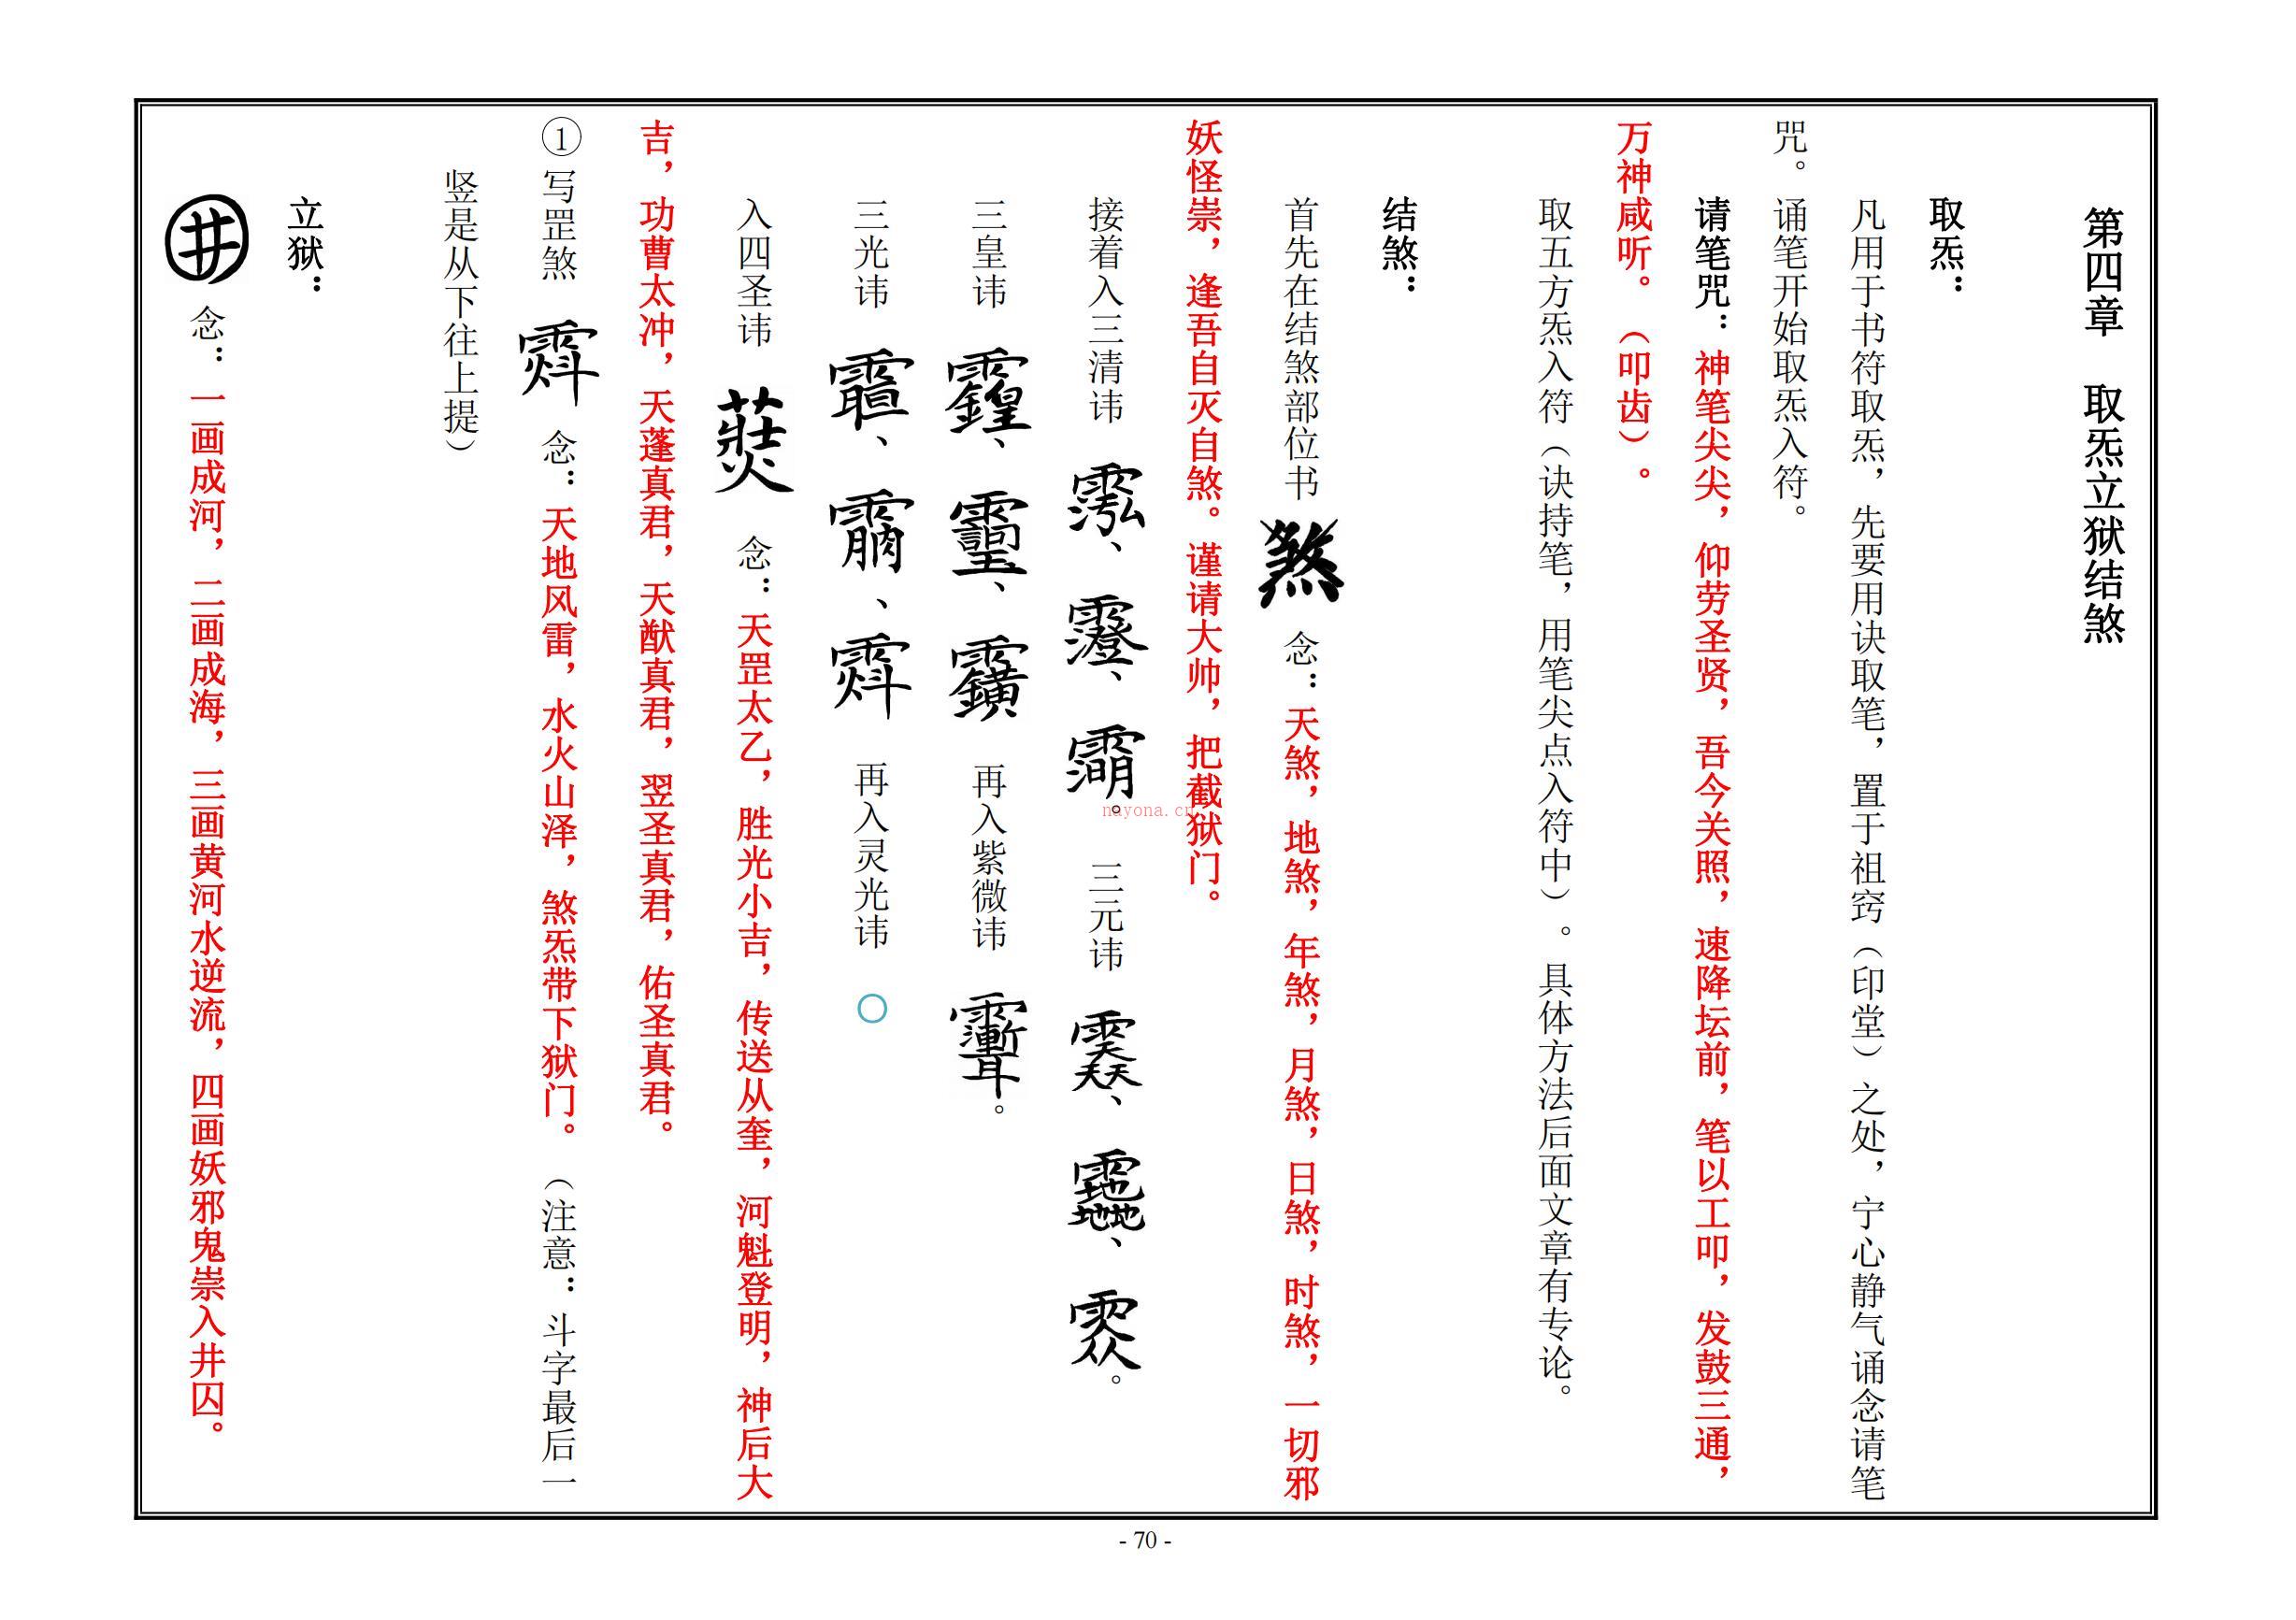 第四章　取炁立狱结煞
取炁：
凡用于书符取炁，先要用诀取笔，置于祖窍（印堂）之处，宁心静气诵念请笔
咒。诵笔开始取炁入符。
请笔咒：神笔尖尖，仰劳圣贤，吾今关照，速降坛前，笔以工叩，发鼓三通，
万神咸听。（叩齿）。
取五方炁入符（诀持笔，用笔尖点入符中）。具体方法后面文章有专论。
结煞：
首先在结煞部位书 煞 念：天煞，地煞，年煞，月煞，日煞，时煞，一切邪
妖怪祟，逢吾自灭自煞。谨请大帅，把截狱门。
接着入三清讳 、、。三元讳 、、。
三皇讳 、、 再入紫微讳 。
三光讳 、、 再入灵光讳 〇
入四圣讳 念：天罡太乙，胜光小吉，传送从奎，河魁登明，神后大
吉，功曹太冲，天蓬真君，天猷真君，翌圣真君，佑圣真君。
①写罡煞 念：天地风雷，水火山泽，煞炁带下狱门。（注意：斗字最后一
竖是从下往上提）
立狱：
井 念：一画成河，二画成海，三画黄河水逆流，四画妖邪鬼祟入井囚。
nayona.cn
- 70 -